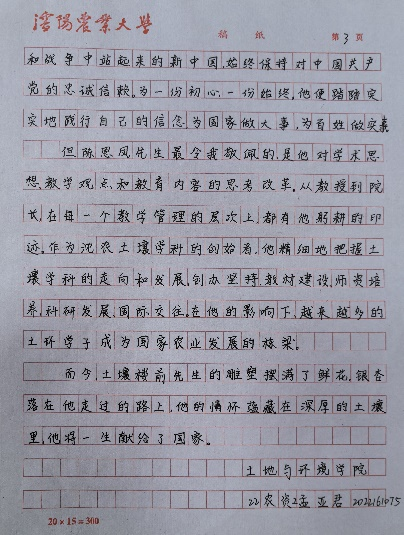 瀋陽農業大學
稿 纸 第3页
和战争中站起来的新中国,始终保持对中国共产
党的忠诚信赖。为一份初心,一份始终,他便踏踏实
实地践行自己的信念,为国家做大事,为百姓做实事。
但陈恩凤先生最令我敬佩的,是他对学术思
想、教学观点和教育内容的思考改革。从教授到院
长,在每一个教学管理的层次上,都有他躬耕的印
迹。作为沈农土壤学科的创始者,他精细地把握土
壤学科的走向和发展,创办坚持教材建设,师资培
养,科研发展,国际交往。在他的影响下,越来越多的
土环学子成为国家农业发展的栋梁。
而今,土壤楼前先生的雕塑摆满了鲜花,银杏
落在他走过的路上,他的情怀蕴藏在深厚的土壤
里,他将一生献给了国家。
土地与环境学院
22农资2孟亚君 2022161075
20×15=300